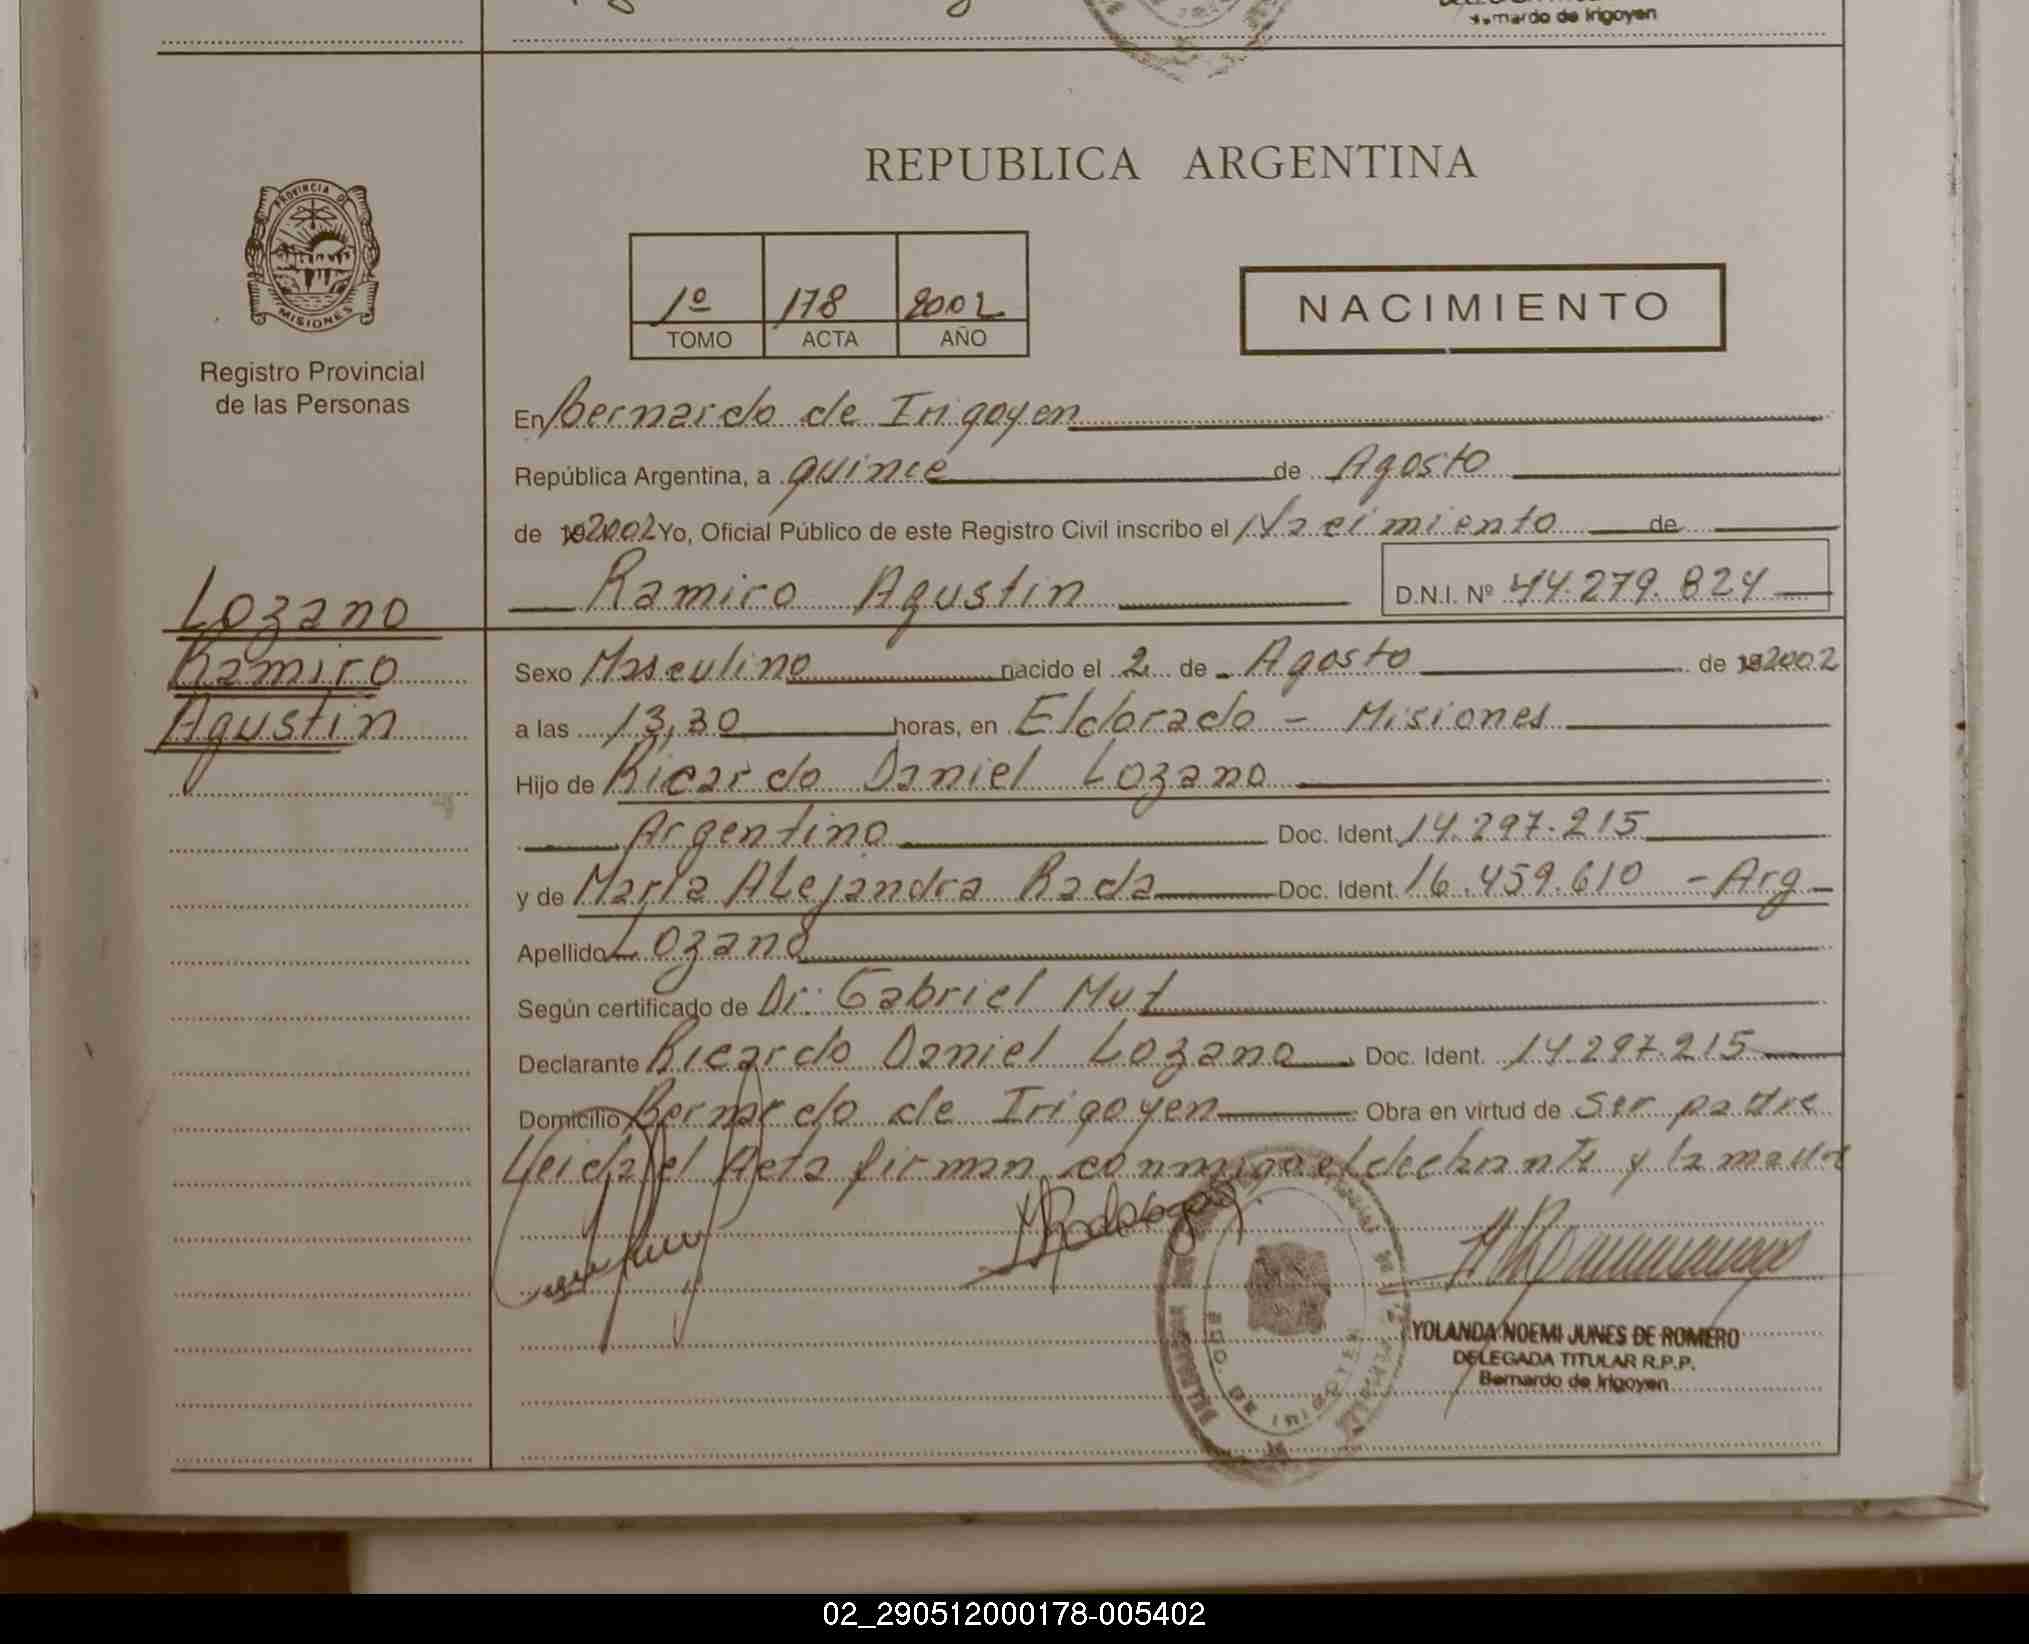 Bernardo de Irigoyen
REPUBLICA ARGENTINA
PROVINCIA DE
MISIONES
Registro Provincial
de las Personas
1º 178 2002
TOMO ACTA AÑO
NACIMIENTO
En Bernardo de Irigoyen
República Argentina, a quince de Agosto
de 2002 Yo, Oficial Público de este Registro Civil inscribo el Nacimiento de
Ramiro Agustin D.N.I. Nº 44.279.824
Lozano
Ramiro
Agustin
Sexo Masculino nacido el 2 de Agosto de 2002
a las 13,30 horas, en Eldorado - Misiones
Hijo de Ricardo Daniel Lozano
Argentino Doc. Ident. 14.297.215
y de María Alejandra Rada Doc. Ident. 16.459.610 - Arg
Apellido Lozano
Según certificado de Dr: Gabriel Mut
Declarante Ricardo Daniel Lozano Doc. Ident. 14.297.215
Domicilio Bernardo de Irigoyen Obra en virtud de ser padre
Leida el Acta firman conmigo el declarante y la madre
BDO. DE IRIGOYEN
YOLANDA NOEMI JUNES DE ROMERO
DELEGADA TITULAR R.P.P.
Bernardo de Irigoyen
02_290512000178-005402